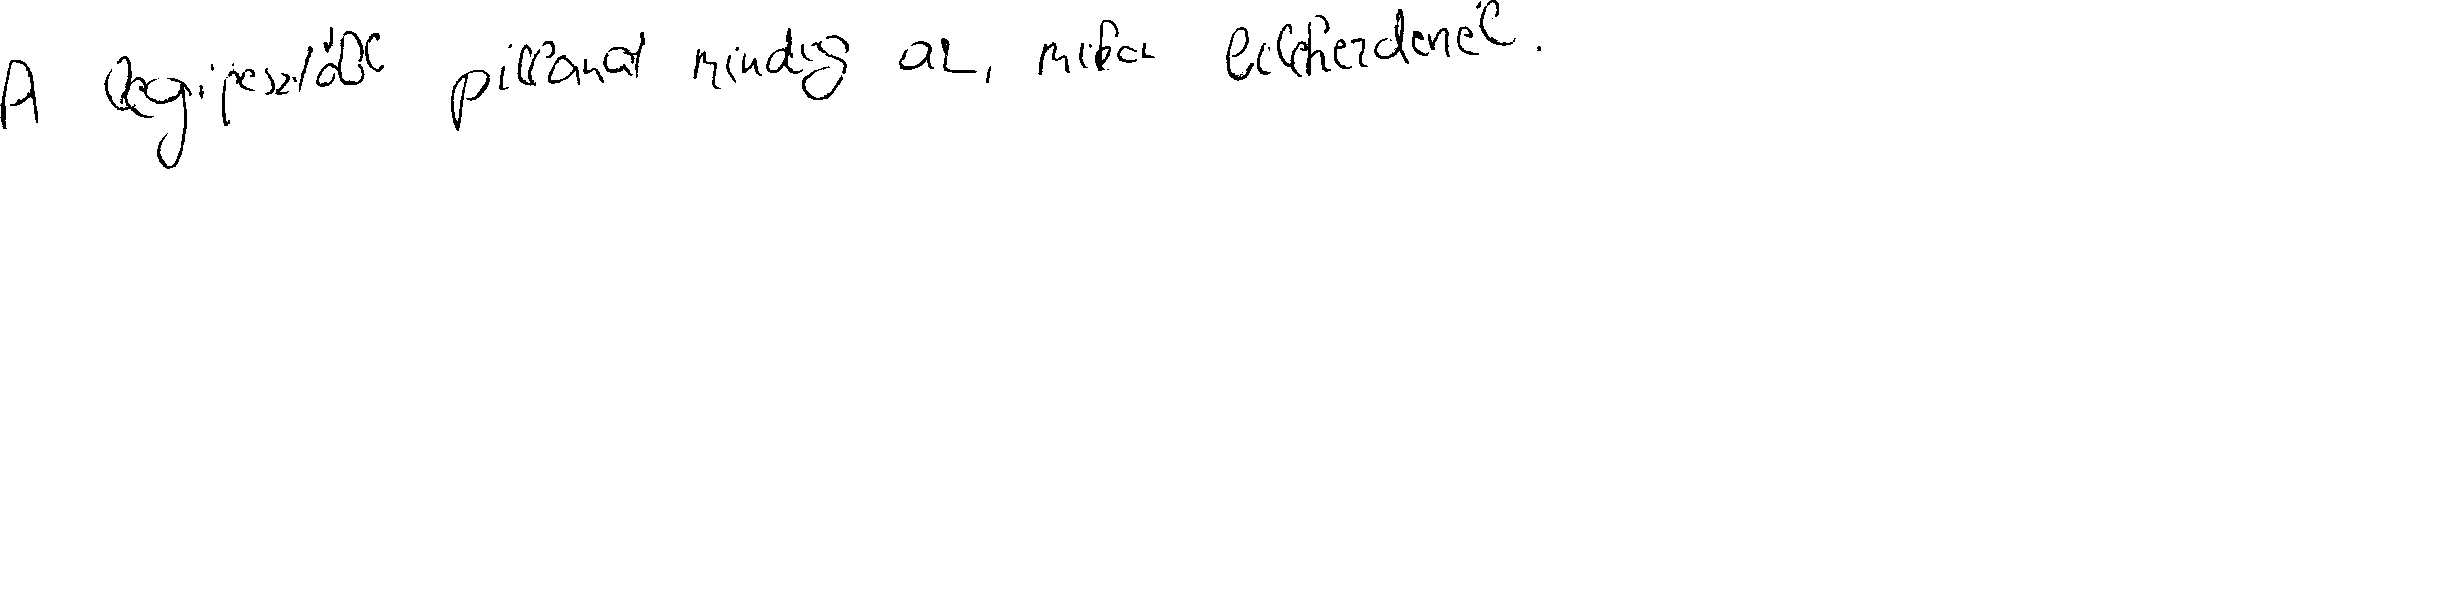 A legijesztőbb pillanat mindig az, mikor elkezdenéd.